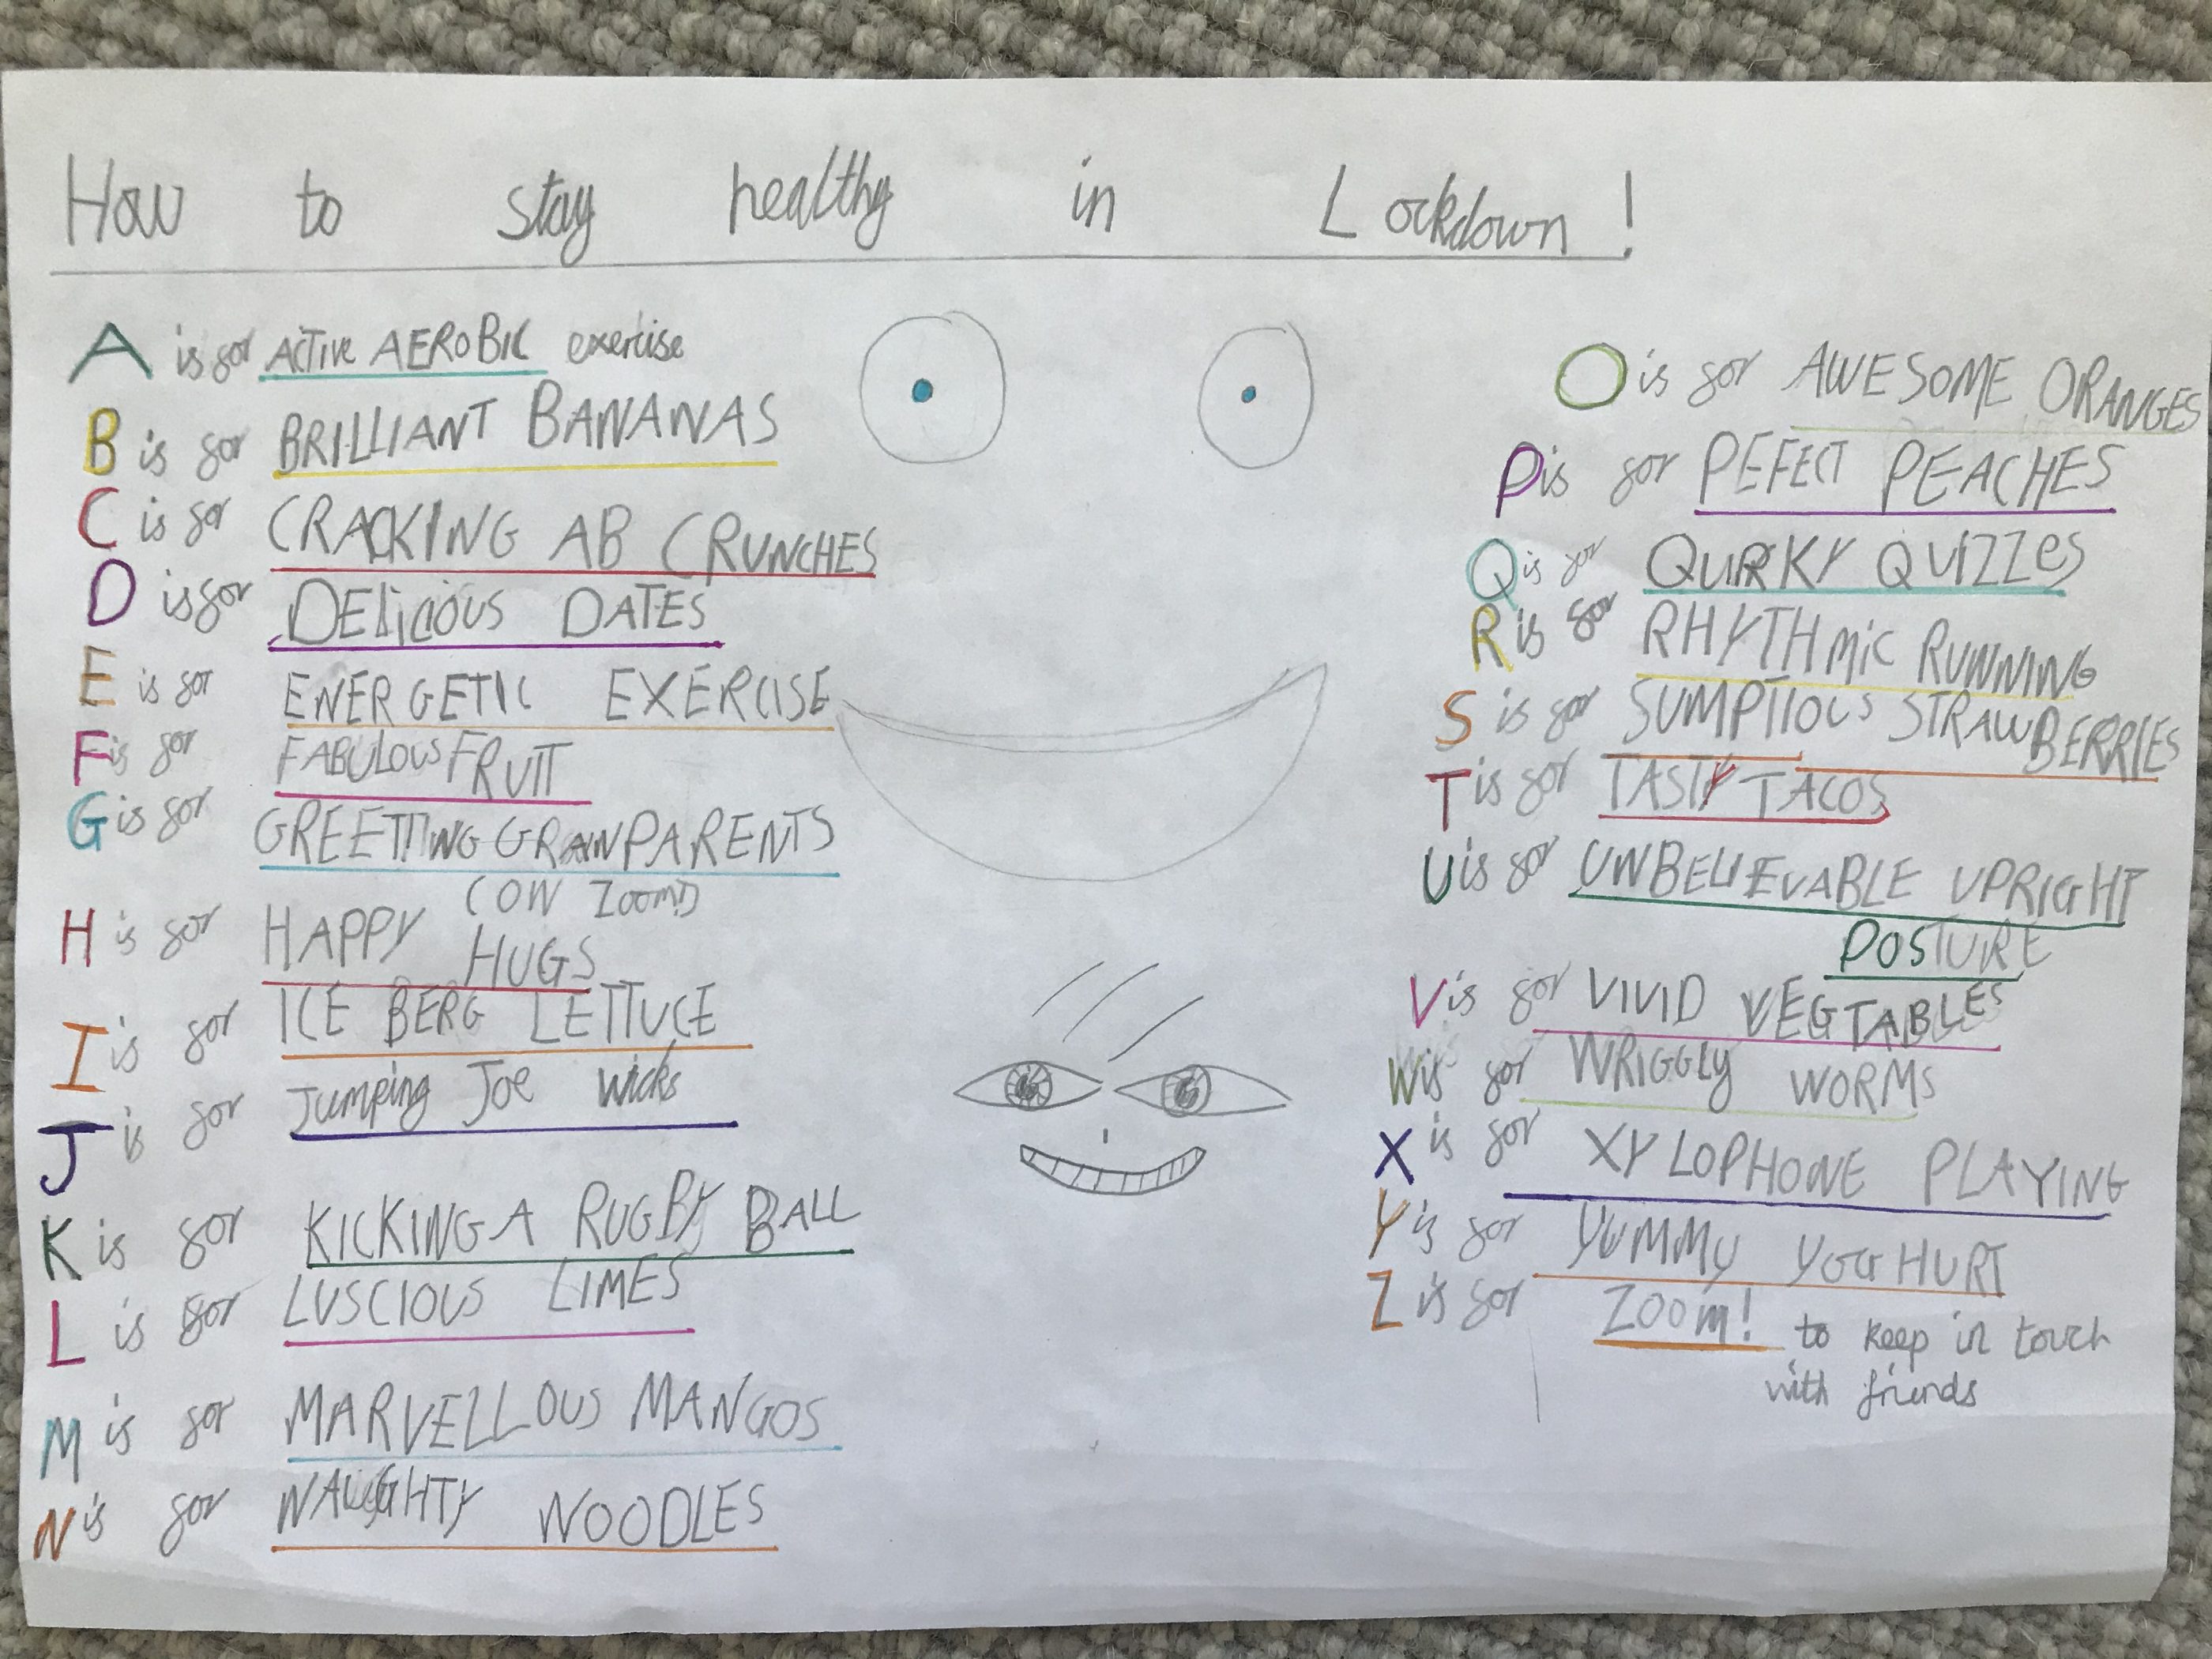 How to stay healthy in Lockdown!
A is for ACTIVE AEROBIC exercise
B is for BRILLIANT BANANAS
C is for CRACKING AB CRUNCHES
D is for DELiCIOUS DATES
E is for ENERGETIC EXERCISE
F is for FABULOUS FRUIT
G is for GREETTING GRANPARENTS
(ON ZOOM!)
H is for HAPPY HUGS
I is for ICE BERG LETTUCE
J is for Jumping Joe Wicks
K is for KICKING A RUGBY BALL
L is for LUSCIOUS LIMES
M is for MARVELLOUS MANGOS
N is for NAUGHTY NOODLES
O is for AWESOME ORANGES
P is for PEFECT PEACHES
Q is for QUIRKY QUIZZes
R is for RHYTHMiC RUNNING
S is for SUMPTIOUS STRAWBERRIES
T is for TASTY TACOS
U is for UNBELIEVABLE UPRIGHT
POSTURE
V is for VIVID VEGTABLES
W is for WRIGGLY WORMS
X is for XYLOPHONE PLAYING
Y is for YUMMY YOGHURT
Z is for ZOOM! to keep in touch
with friends